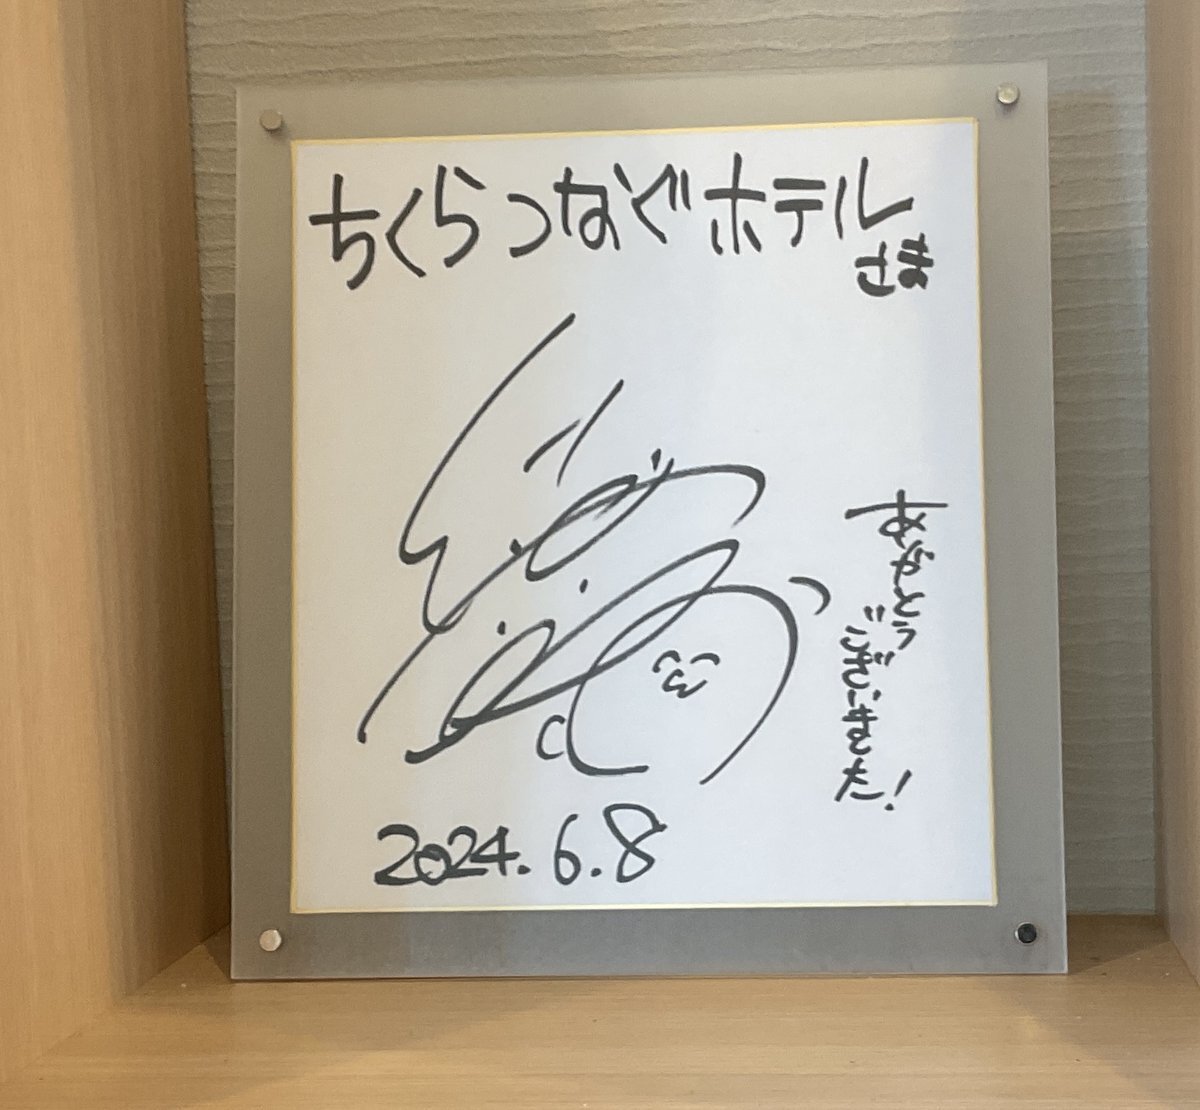 ちくらつなぐホテル
さま
ありがとう
ございました!
2024.6.8